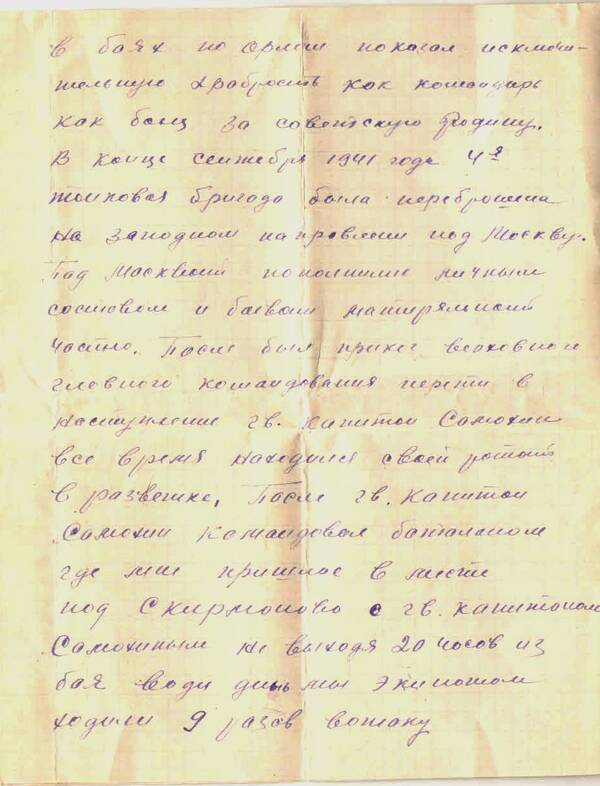 в баях по Орлом показал исключи-
тельную храбрость как командирь
как боец за советскую Родину.
В конце сентебря 1941 года 4я
танковая бригада была переброшена
на западном направлении под Москву.
Под Масквой пополнили личным
составом и боевой матиряльной
частю. После был приказ верховного
главного командования перети в
наступление гв. капитан Самохин
все время находился своей ротой
в разветке, После гв. капитан
Самохин командовал баталаном
где мне пришлос в месте
под Скирмоново с гв. капитаном
Самохиным не выходя 20 часов из
боя води день мы экипажом
ходили 9 разов ватаку